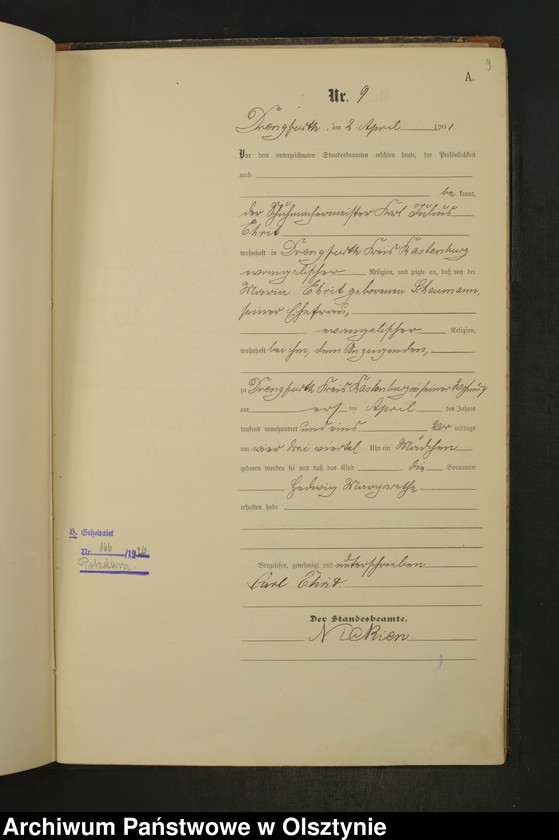 9
A.
Nr. 9
Drengfurth, am 2. April 1901.
Vor dem unterzeichneten Standesbeamten erschien heute, der Persönlichkeit
nach
be kannt,
der Schuhmachermeister Karl Julius
wohnhaft in Drengfurth Kreis Rastenburg
evangelischer Religion, und zeigte an, daß von der
Maria geborenen
seiner Ehefrau,
evangelischer Religion,
wohnhaft bei ihm, dem Anzeigenden,
zu Drengfurth Kreis Rastenburg in seiner Wohnung
am ersten April des Jahres
tausend neunhundert und eins Vor mittags
um vier drei viertel Uhr ein Mädchen
geboren worden sei und daß das Kind die Vornamen
Hedwig Margarethe
erhalten habe
H. Geheiratet
Nr. 166 /1926.
Potsdam
Vorgelesen, genehmigt und unterschrieben
Carl
Der Standesbeamte.
Archiwum Państwowe w Olsztynie